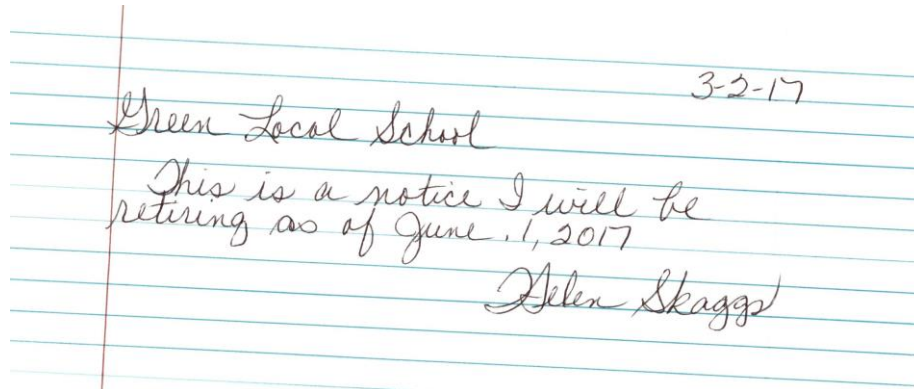 3-2-17
Green Local School
This is a notice I will be
retiring as of June. 1, 2017
Helen Skaggs